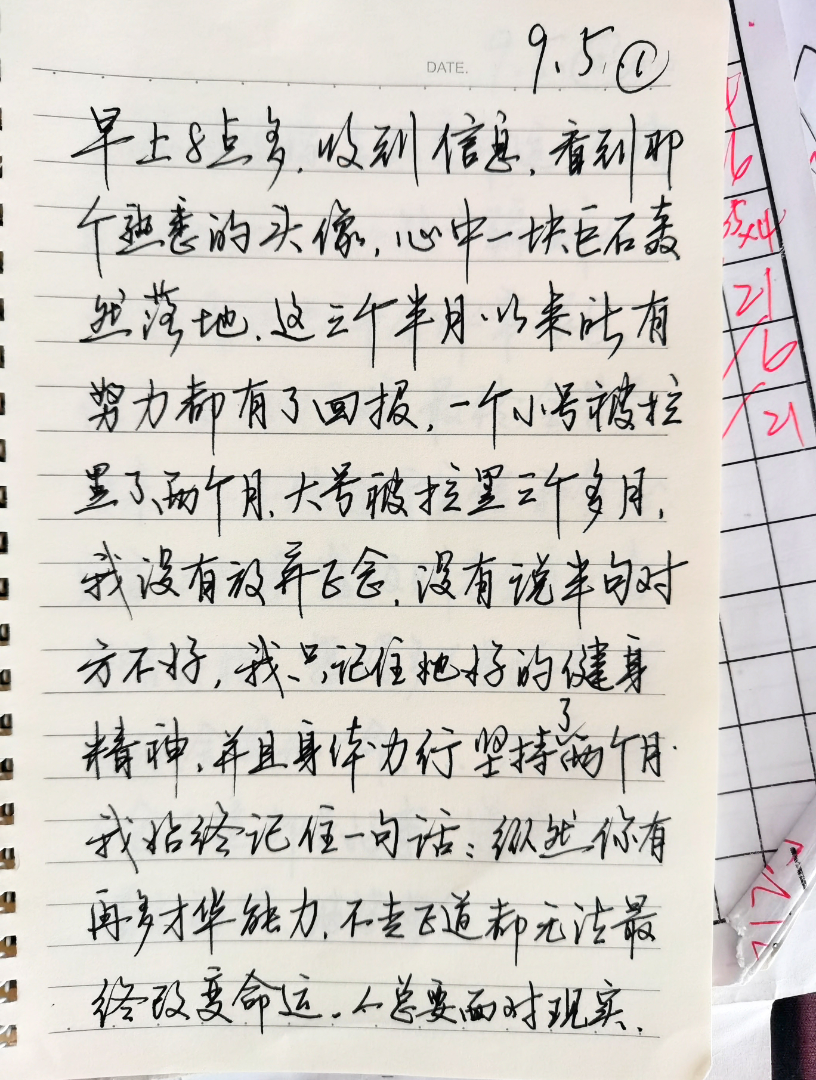 DATE. 9.5. ①
早上8点多,收到信息,看到那
个熟悉的头像,心中一块巨石轰
然落地,这三个半月以来所有
努力都有了回报,一个小号被拉
黑了两个月,大号被拉黑三个多月,
我没有放弃正念,没有说半句对
方不好,我只记住她好的健身
精神,并且身体力行坚持了两个月.
我始终记住一句话:纵然你有
再多才华能力,不走正道都无法最
终改变命运.人总要面对现实.
6
5x4
21
6
21